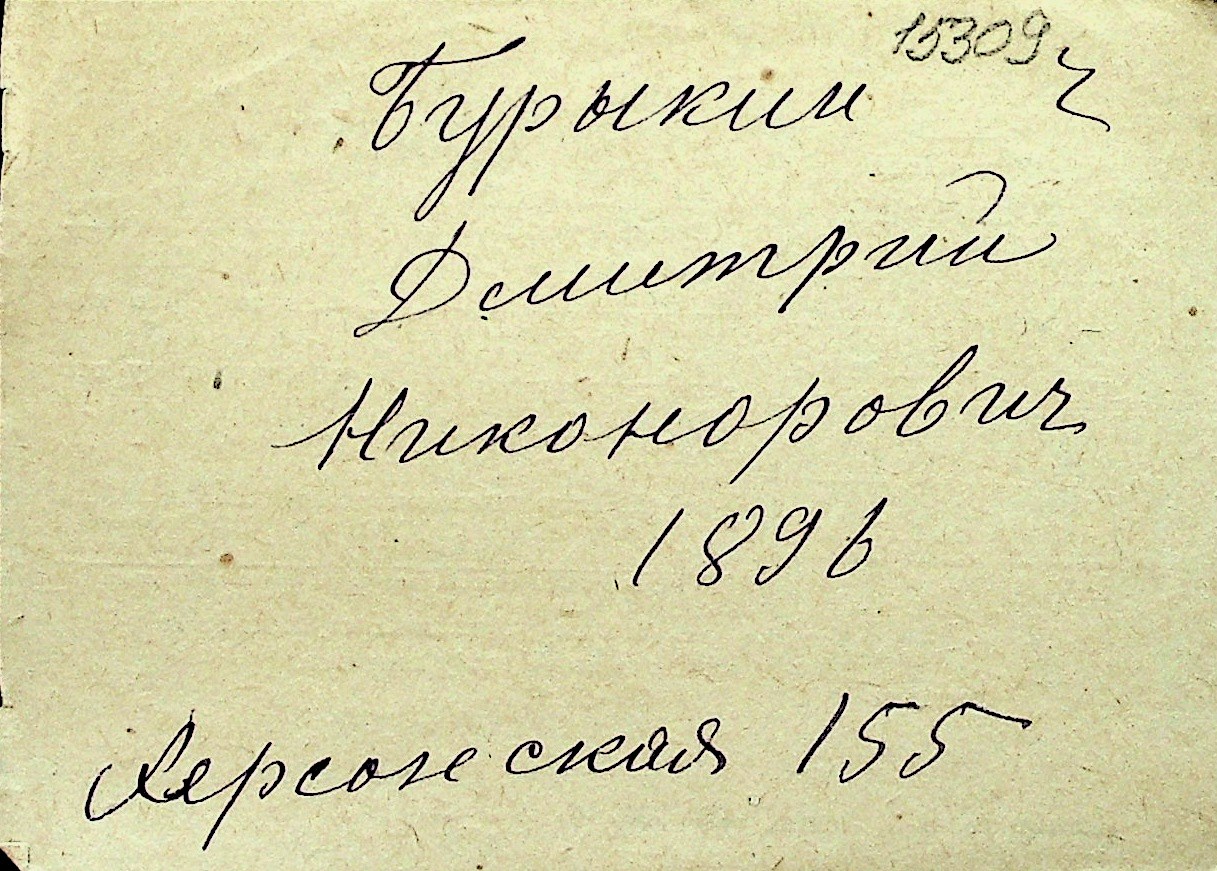 15309
Бурыкин
Дмитрий
Никонорович
1896
Херсонская 155